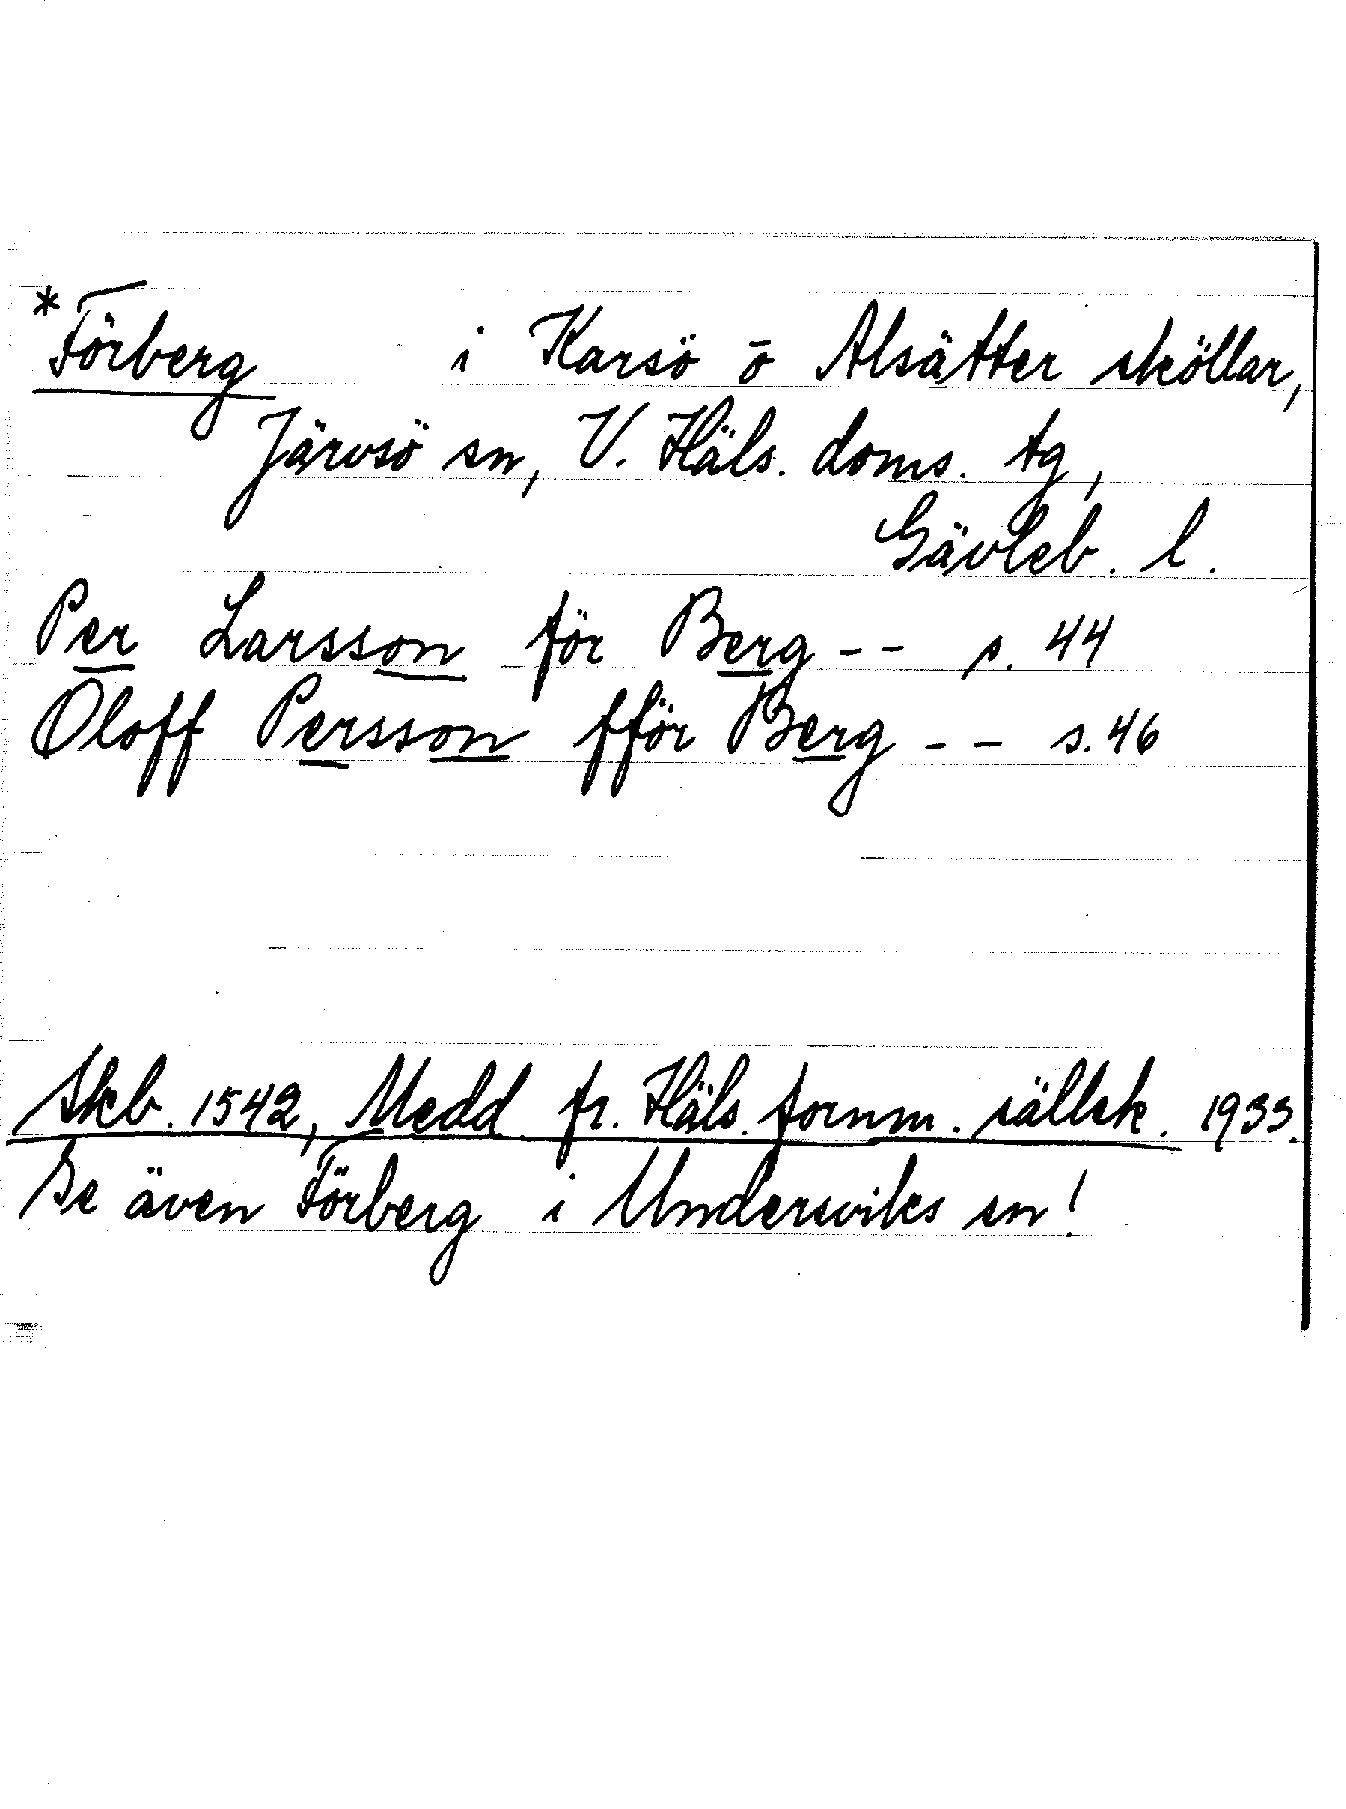 *Förberg i Karsö o Alsätter sköllar,
Järvsö sn, V. Häls. doms. tg,
Gävleb. l.
Per Larsson för Berg -- s. 44
Oloff Persson fför Berg -- s. 46
Skb. 1542, Medd fr. Häls. fornm. sällsk. 1933.
Se även Förberg i Undersviks sn!